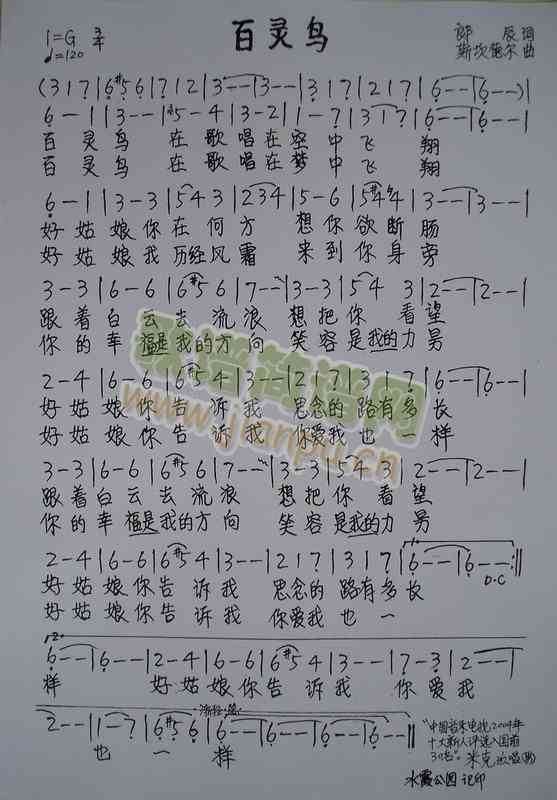 百灵鸟
1=G 3/4
♩=120
郎辰 词
斯坎德尔 曲
(3 1 7̣ | 6̣ #5̣ 6̣ | 7̣ 1 2 | 3 - - | 3 - - | 3 1 7̣ | 2 1 7̣ | 6̣ - - | 6̣ - - )|
6̣ - 1 | 3 - - | #5 - 4 | 3 - 2 | 1 - 7̣ | 3 1 7̣ | 6̣ - - | 6̣ - - |
百灵鸟 在歌唱在空中飞 翔
百灵鸟 在歌唱在梦中飞 翔
6̣ - 1 | 3 - 3 | 5 4 3 | 2 3 4 | 5 - 6 | 5 #4 4 | 3 - - | 3 - - |
好姑娘你在何方 想你欲断肠
好姑娘我历经风霜 来到你身旁
3 - 3 | 6 - 6 | 6 #5 6 | 7 - - | 3 - 3 | 5 4 3 | 2 - - | 2 - - |
跟着白云去流浪 想把你看望
你的幸福是我的方向 笑容是我的力另
2 - 4 | 6 - 6 | 6 #5 4 | 3 - - | 2 1 7̣ | 3 1 7̣ | 6̣ - - | 6̣ - - |
好姑娘你告诉我 思念的路有多长
好姑娘你告诉我 你爱我也一样
3 - 3 | 6 - 6 | 6 #5 6 | 7 - - | 3 - 3 | 5 4 3 | 2 - - | 2 - - |
跟着白云去流浪 想把你看望
你的幸福是我的方向 笑容是我的力另
2 - 4 | 6 - 6 | 6 #5 4 | 3 - - | 2 1 7̣ | 3 1 7̣ | 6̣ - - | 6̣ - - :||
D.C
好姑娘你告诉我 思念的路有多长
好姑娘你告诉我 你爱我也一
2.
6̣ - - | 6̣ - - | 2 - 4 | 6 - 6 | 6 #5 4 | 3 - - | 7̣ - 3 | 2 - - |
样 好姑娘你告诉我 你爱我
渐轻
2 - - | 1 - 7̣ | 6̣ #5̣ 6̣ | 6̣ - - | 6̣ - - | 6̣ - - | 6̣ - - ||
也一样
米克 演唱
水霞公园 记印
www.jianpu.cn